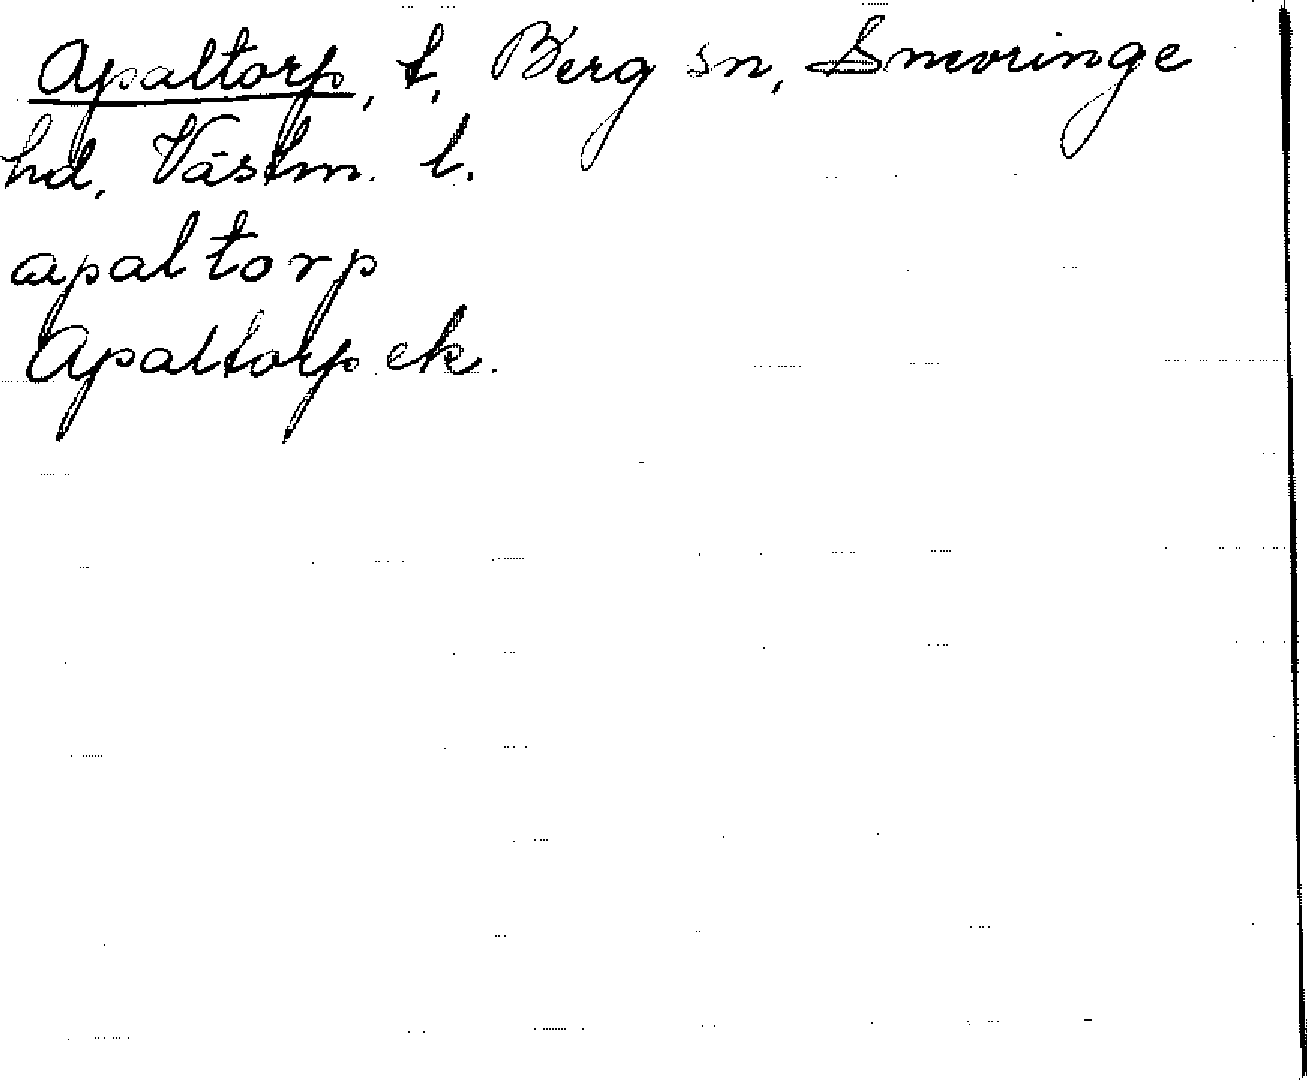 Apaltorp, t. Berg sn, Snevringe
hd, Västm. l.
apaltorp
Apaltorp ek.